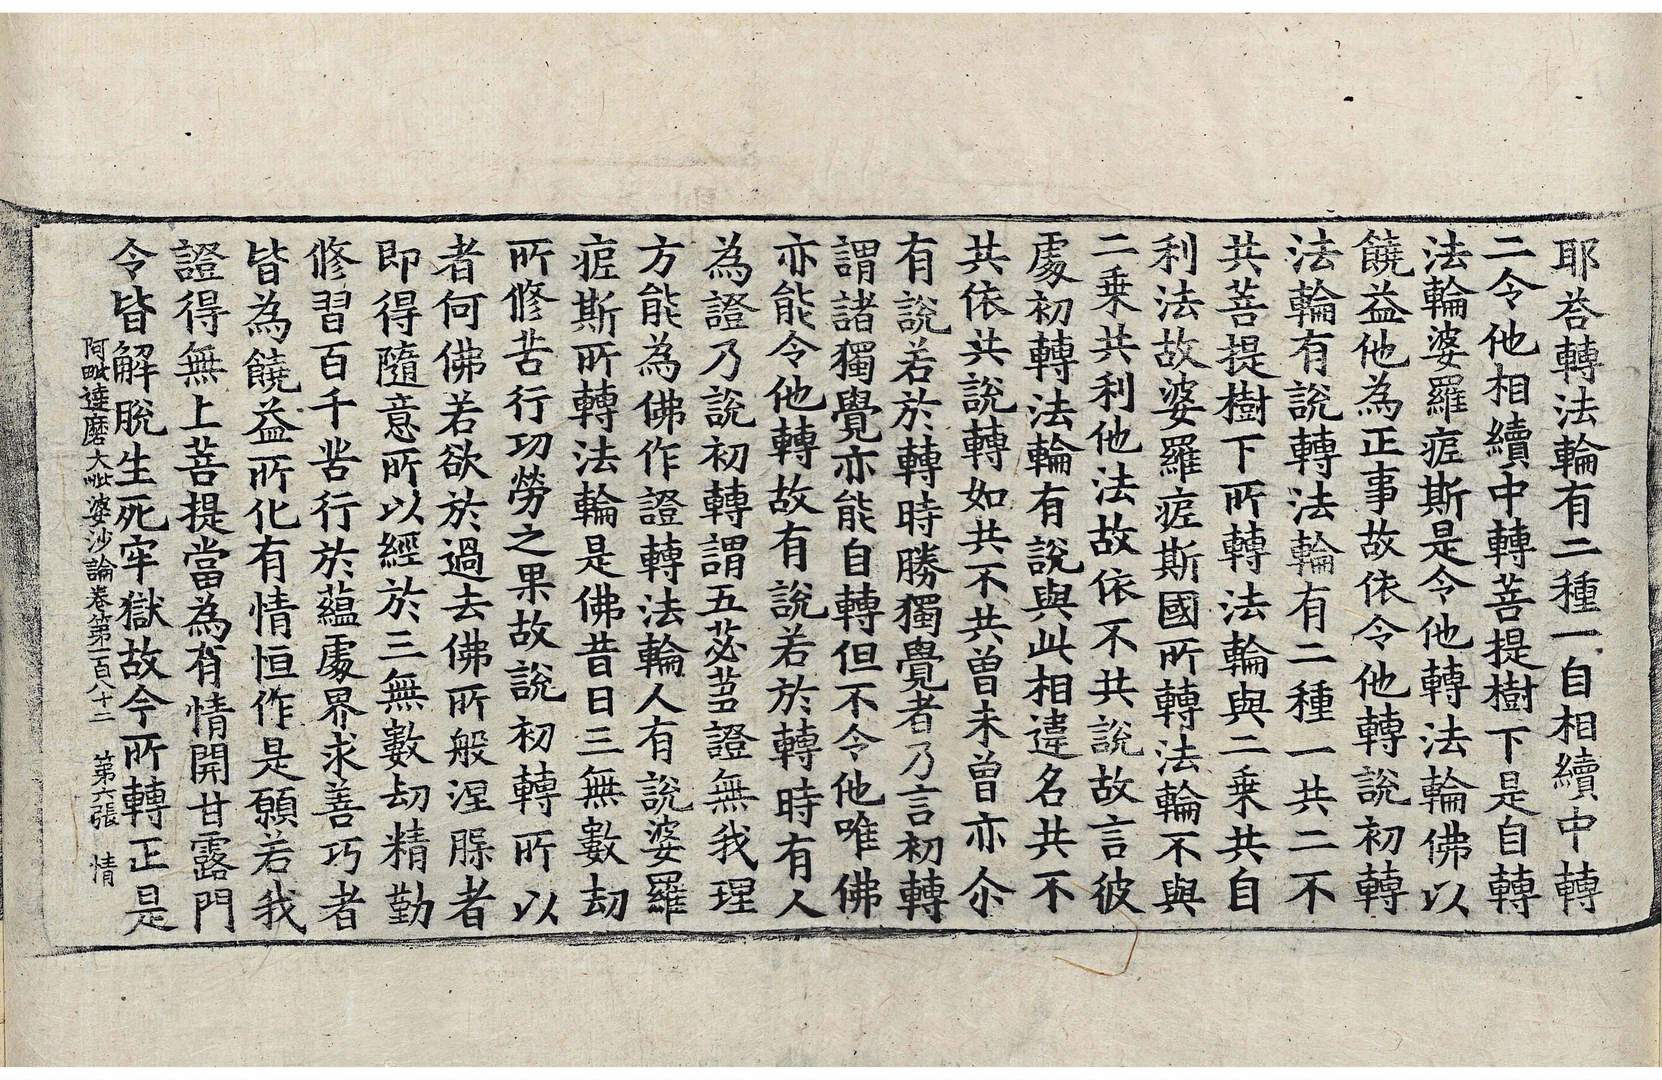 耶荅轉法輪有二種一自相續中轉
二令他相續中轉菩提樹下是自轉
法輪婆羅痆斯是令他轉法輪佛以
饒益他為正事故依令他轉說初轉
法輪有說轉法輪有二種一共二不
共菩提樹下所轉法輪與二乗共自
利法故婆羅痆斯國所轉法輪不與
二乗共利他法故依不共說故言彼
處初轉法輪有說與此相違名共不
共依共說轉如共不共曾未曾亦尒
有說若於轉時勝獨覺者乃言初轉
謂諸獨覺亦能自轉但不令他唯佛
亦能令他轉故有說若於轉時有人
為證乃說初轉謂五苾芻證無我理
方能為佛作證轉法輪人有說婆羅
痆斯所轉法輪是佛昔日三無數劫
所修苦行功勞之果故說初轉所以
者何佛若欲於過去佛所般涅槃者
即得隨意所以經於三無數劫精勤
修習百千苦行於蘊處界求善巧者
皆為饒益所化有情恒作是願若我
證得無上菩提當為有情開甘露門
令皆解脫生死牢獄故今所轉正是
阿毗達磨大毗婆沙論卷第一百八十二 第六張 情